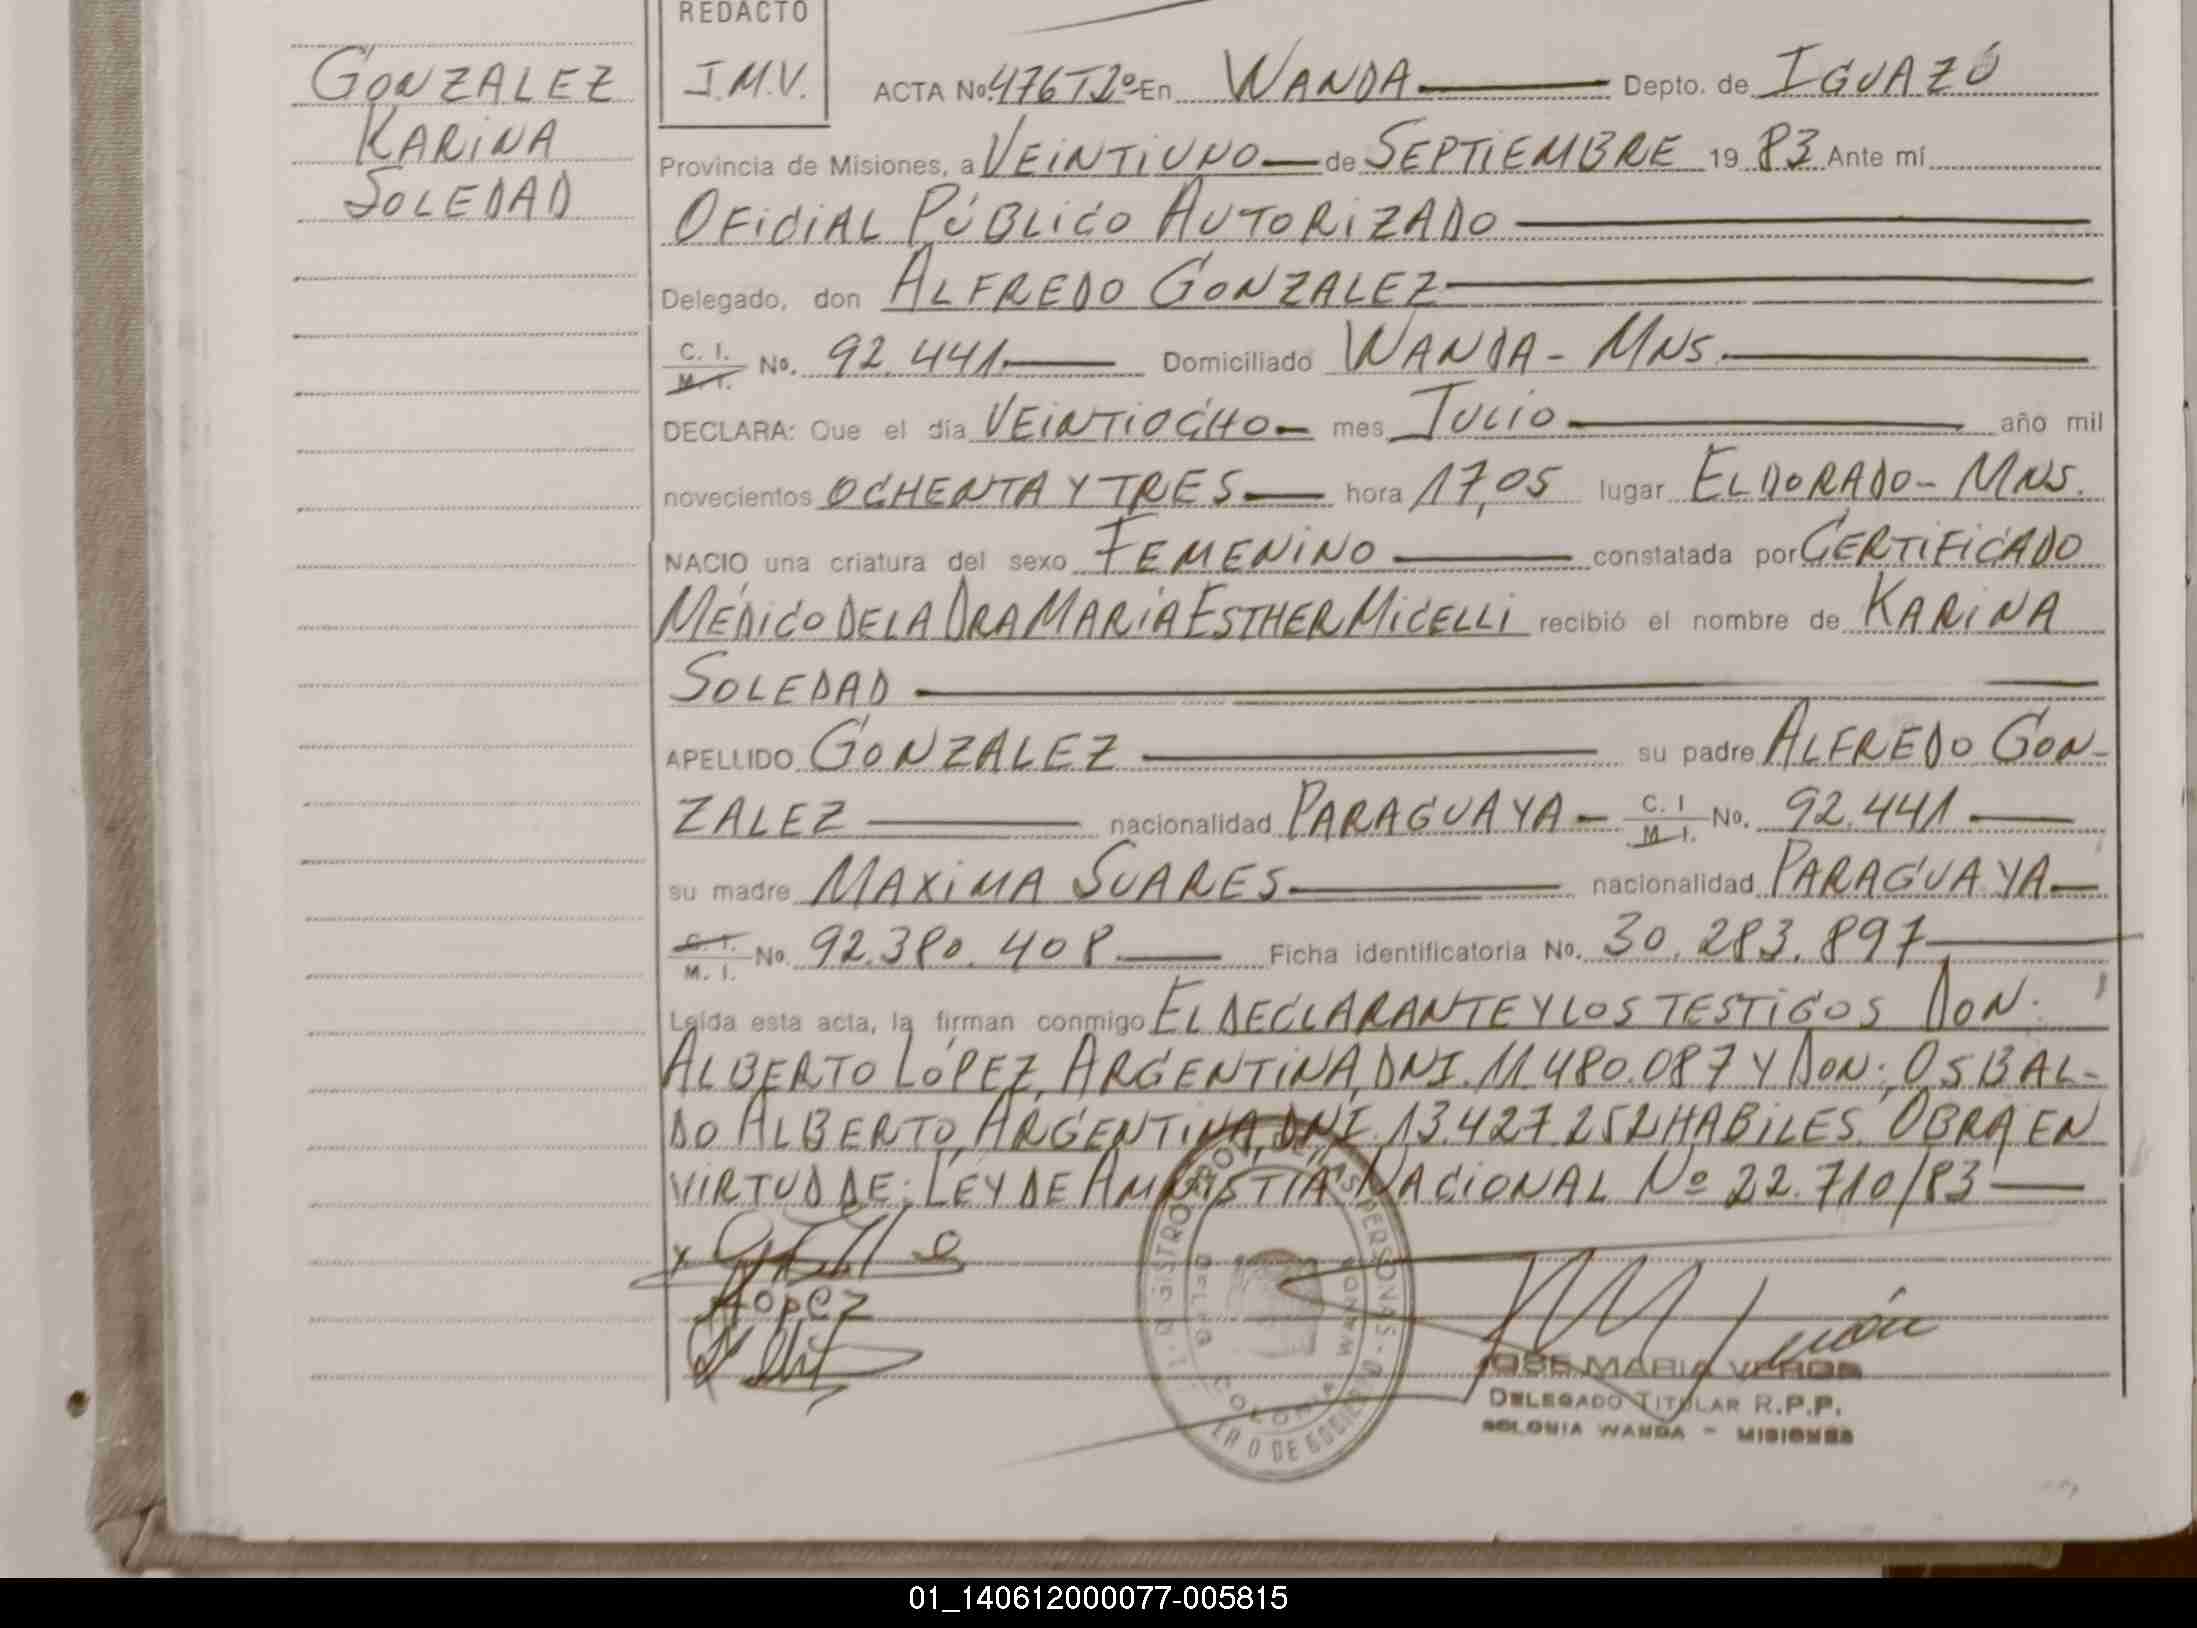 GONZALEZ
KARINA
SOLEDAD
REDACTO
J.M.V.
ACTA No. 476 T2º En WANDA Depto. de IGUAZÚ
Provincia de Misiones, a VEINTIUNO de SEPTIEMBRE 19 83 Ante mí
OFICIAL PÚBLICO AUTORIZADO
Delegado, don ALFREDO GONZALEZ
C. I. M. I. No. 92.441 Domiciliado WANDA - MNS.
DECLARA: Que el día VEINTIOCHO mes JULIO año mil
novecientos OCHENTA Y TRES hora 17,05 lugar ELDORADO - MNS.
NACIO una criatura del sexo FEMENINO constatada por CERTIFICADO
MÉDICO DE LA DRA MARÍA ESTHER MICELLI recibió el nombre de KARINA
SOLEDAD
APELLIDO GONZALEZ su padre ALFREDO GON-
ZALEZ nacionalidad PARAGUAYA C. I M. I. No. 92.441
su madre MAXIMA SUARES nacionalidad PARAGUAYA
C. I. M. I. No. 92.380.408 Ficha identificatoria No. 30.283.897
Leída esta acta, la firman conmigo EL DECLARANTE Y LOS TESTIGOS DON:
ALBERTO LÓPEZ, ARGENTINA, DNI. 11.480.087 Y DON: OSBAL-
DO ALBERTO, ARGENTINA, DNI. 13.427.252 HABILES. OBRA EN
VIRTUD DE: LEY DE AMNISTIA NACIONAL Nº 22.710/83
López
JOSE MARIA VERON
DELEGADO TITULAR R.P.P.
COLONIA WANDA - MISIONES
COLONIA WANDA
01_140612000077-005815